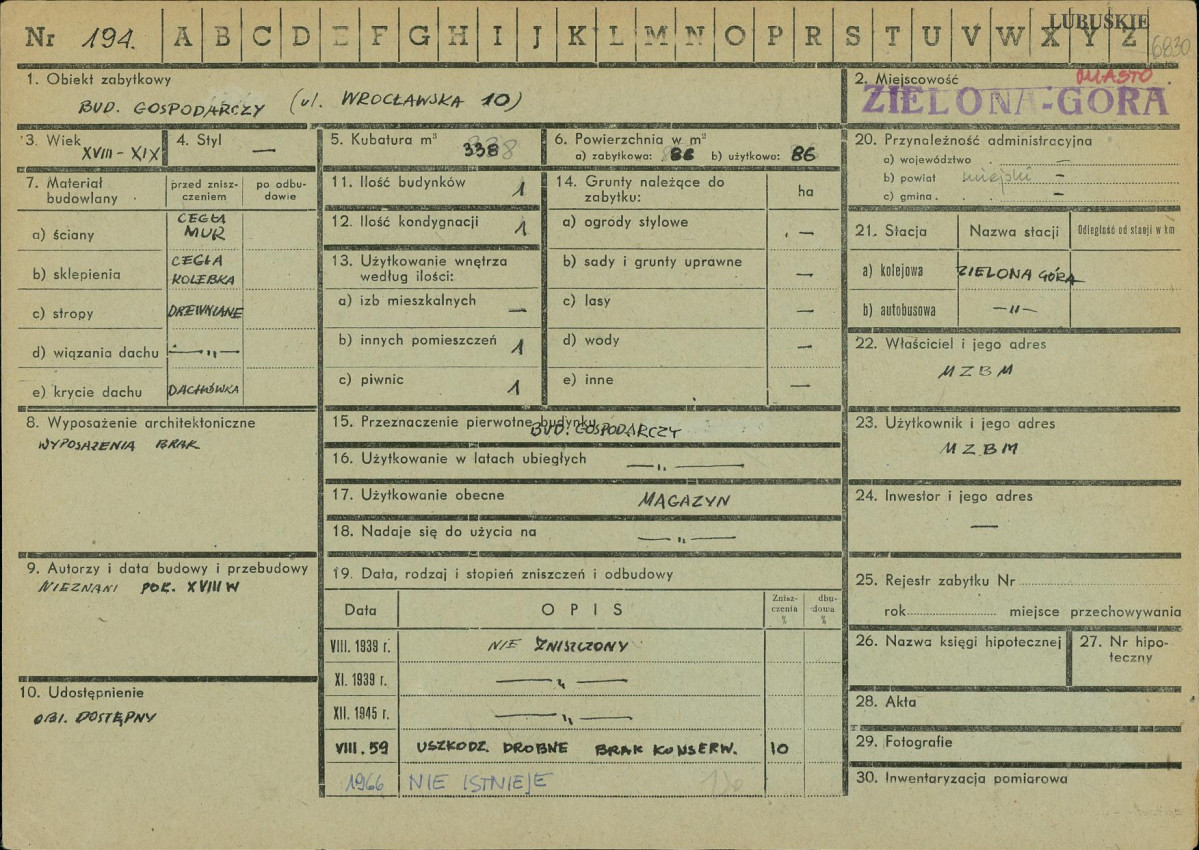 LUBUSKIE
Nr 194. A B C D E F G H I J K L M N O P R S T U V W X Y Z
6830
1. Obiekt zabytkowy
BUD. GOSPODARCZY (ul. WROCŁAWSKA 10)
2. Miejscowość MIASTO
ZIELONA-GÓRA
3. Wiek XVIII - XIX
4. Styl —
5. Kubatura m³ 338
6. Powierzchnia w m²
a) zabytkowa: 86 b) użytkowa: 86
7. Materiał budowlany
przed zniszczeniem
po odbudowie
a) ściany CEGŁA MUR
b) sklepienia CEGŁA KOLEBKA
c) stropy DREWNIANE
d) wiązania dachu —„—
e) krycie dachu DACHÓWKA
8. Wyposażenie architektoniczne
WYPOSAŻENIA BRAK
9. Autorzy i data budowy i przebudowy
NIEZNANI POŁ. XVIII W
10. Udostępnienie
OBI. DOSTĘPNY
11. Ilość budynków 1
12. Ilość kondygnacji 1
13. Użytkowanie wnętrza według ilości:
a) izb mieszkalnych —
b) innych pomieszczeń 1
c) piwnic 1
14. Grunty należące do zabytku: ha
a) ogrody stylowe —
b) sady i grunty uprawne —
c) lasy —
d) wody —
e) inne —
15. Przeznaczenie pierwotne budynku
BUD. GOSPODARCZY
16. Użytkowanie w latach ubiegłych —„—
17. Użytkowanie obecne MAGAZYN
18. Nadaje się do użycia na —„—
19. Data, rodzaj i stopień zniszczeń i odbudowy
Data OPIS Zniszczenia % dbudowa %
VIII. 1939 r. NIE ZNISZCZONY
XI. 1939 r. —„—
XII. 1945 r. —„—
VIII. 59 USZKODZ. DROBNE BRAK KONSERW. 10
1966 NIE ISTNIEJE
20. Przynależność administracyjna
a) województwo —
b) powiat miejski —
c) gmina —
21. Stacja Nazwa stacji Odległość od stacji w km
a) kolejowa ZIELONA GÓRA
b) autobusowa —„—
22. Właściciel i jego adres
MZBM
23. Użytkownik i jego adres
MZBM
24. Inwestor i jego adres
—
25. Rejestr zabytku Nr
rok miejsce przechowywania
26. Nazwa księgi hipotecznej
27. Nr hipoteczny
28. Akta
29. Fotografie
30. Inwentaryzacja pomiarowa